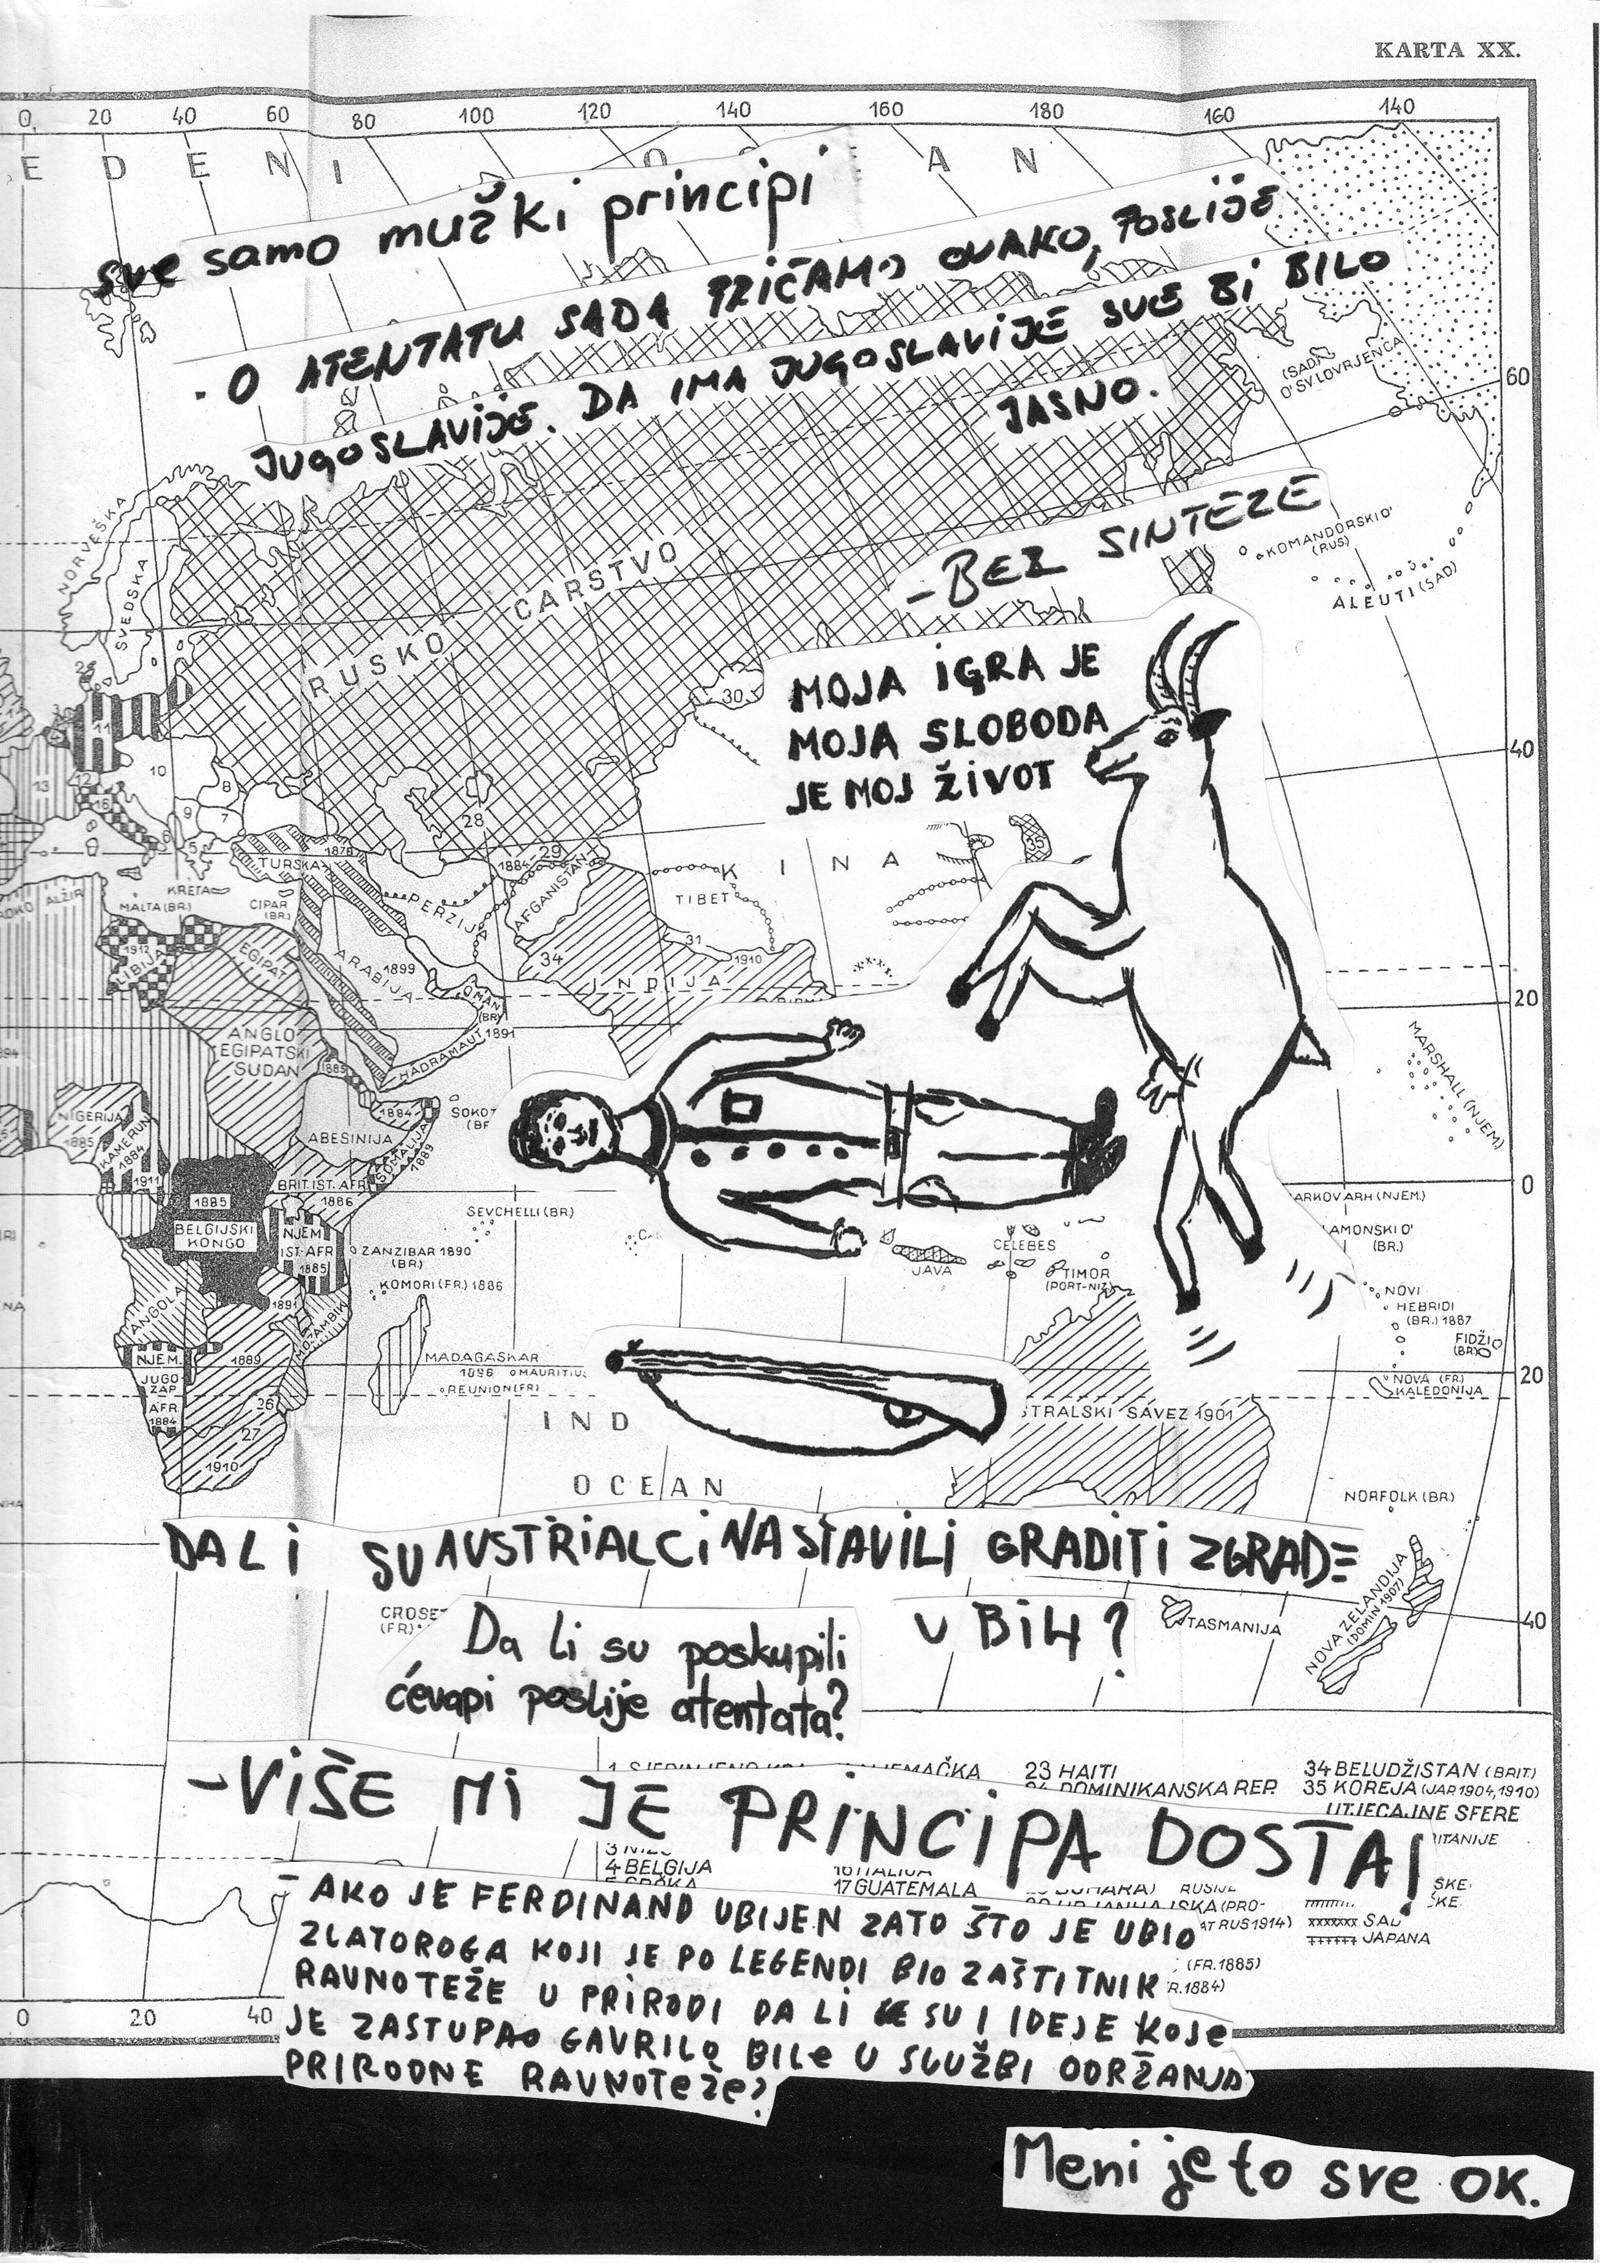 KARTA XX.
0 20 40 60 80 100 120 140 160 180 160 140
E D E N I O A N
Sve samo muški principi
- O ATENTATU SADA PRIČAMO OVAKO, POSLIJE
JUGOSLAVIJE. DA IMA JUGOSLAVIJE SVE BI BILO
JASNO.
(SADA
O'SV.LOVRJENCA
60
NORVEŠKA
ŠVEDSKA
- BEZ SINTEZE
KOMANDORSKI O'
(RUS)
ALEUTI (SAD)
RUSKO CARSTVO
MOJA IGRA JE
MOJA SLOBODA
JE MOJ ŽIVOT
30
40
11
10
13
12
16
8
9
7
6
5
28
29
35
1878
1884
TURSKA
K I N A
TIBET
AFGANISTAN
PERZIJA
KRETA
MALTA (BR.)
CIPAR
(BR.)
ALŽIR
1912
LIBIJA
EGIPAT
ARABIJA
1899
34
31
1910
INDIJA
OMAN
(BR)
HADRAMAUT 1891
20
ANGLO
EGIPATSKI
SUDAN
1885
MARSHALL (NJEM)
NIGERIJA
1885
KAMERUN
1884
1911
1884
ABESINIJA
SOMALIJA
1889
BRIT.IST. AFR.
1886
1885
BELGIJSKI
KONGO
NJEM.
IST.AFR
1885
SEYCHELLI (BR.)
ZANZIBAR 1890
(BR)
KOMORI (FR.) 1886
0
ARKOV ARH (NJEM.)
LAMONSKI O'
(BR.)
CELEBES
JAVA
TIMOR
(PORT-NIZ)
NOVI
HEBRIDI
(BR.) 1887
FIDŽI
(BR)
ANGOLA
1891
MOZAMBIK
NJEM.
JUGO
ZAP
AFR.
1884
1889
26
27
1910
MADAGASKAR
1896
MAURITIUS
REUNION (FR)
20
NOVA (FR.)
KALEDONIJA
STRALSKI SAVEZ 1901
IND
OCEAN
NORFOLK (BR)
DA LI SU AUSTRIALCI NASTAVILI GRADITI ZGRADE
U BiH?
CROSET
(FR)
TASMANIJA
NOVA ZELANDIJA
(DOMIN 1907)
40
Da li su poskupili
ćevapi poslije atentata?
NJEMAČKA
23 HAITI
24 DOMINIKANSKA REP.
34 BELUDŽISTAN (BRIT)
35 KOREJA (JAP. 1904, 1910)
UTJECAJNE SFERE
- VIŠE MI JE PRINCIPA DOSTA!
4 BELGIJA
17 GUATEMALA
RUSIJE
SAD
JAPANA
(PRO-
AT RUS 1914)
(FR. 1885)
- AKO JE FERDINAND UBIJEN ZATO ŠTO JE UBIO
ZLATOROGA KOJI JE PO LEGENDI BIO ZAŠTITNIK
RAVNOTEŽE U PRIRODI DA LI SU I IDEJE KOJE
JE ZASTUPAO GAVRILO BILE U SLUŽBI ODRŽANJA
PRIRODNE RAVNOTEŽE?
0 20 40
Meni je to sve OK.